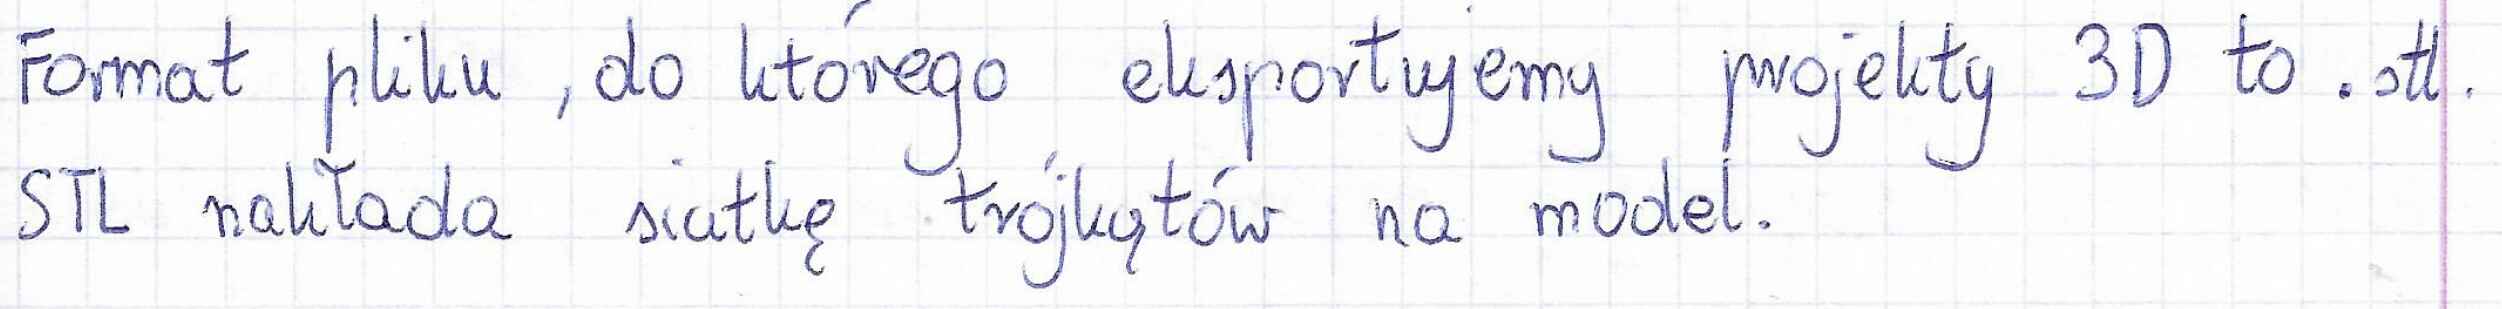 Format pliku, do którego eksportujemy projekty 3D to .stl.
STL nakłada siatkę trójkątów na model.